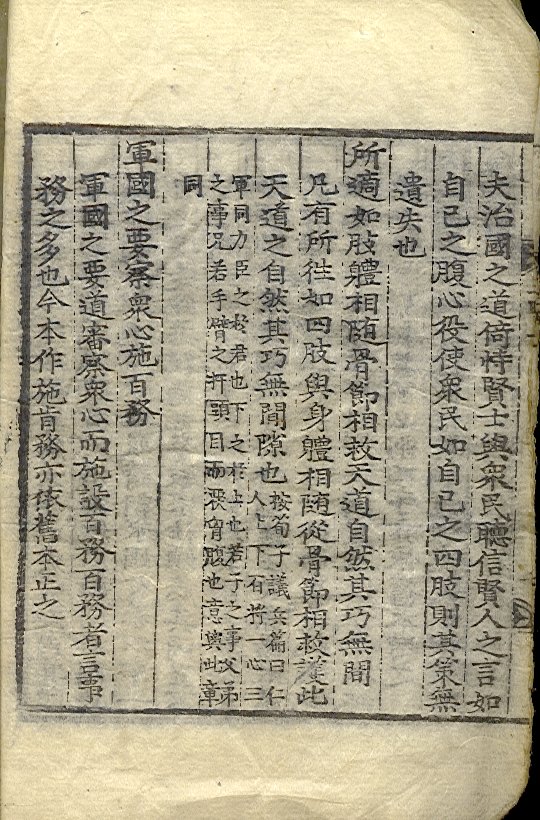 夫治國之道倚恃賢士與衆民聽信賢人之言如
自己之腹心役使衆民如自己之四肢則其策無
遺失也
所適如肢軆相随骨節相救天道自然其巧無間
凡有所往如四肢與身軆相随從骨節相救護此
天道之自然其巧無間隙也按荀子議兵篇曰仁
人上下百將一心三
軍同力臣之於君也下之於上也若子之事父弟
之事兄若手臂之扞頭目而覆胷腹也意與此章
同
軍國之要察衆心施百務
軍國之要道審察衆心而施設百務百務者言事
務之多也今本作施肯務亦依舊本正之